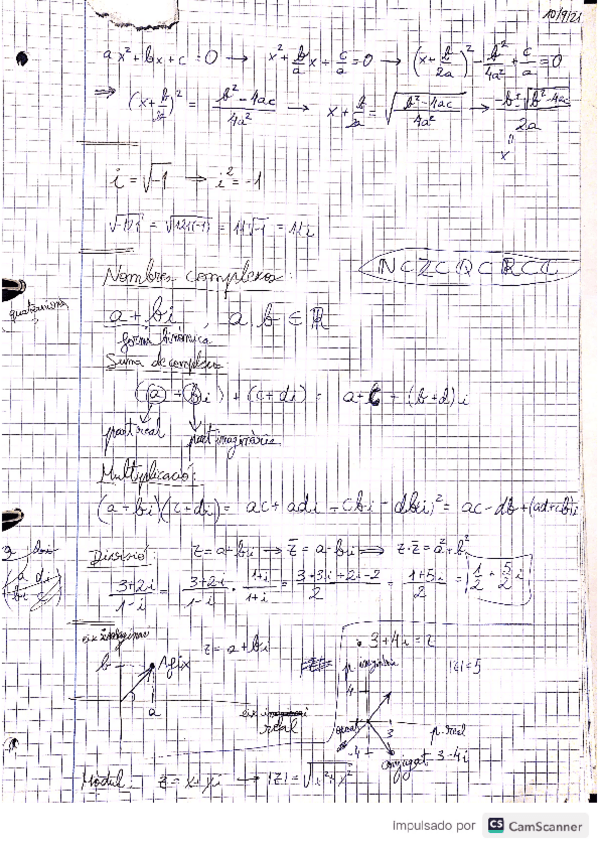 10/9/21
ax² + bx + c = 0 → x² + b/a x + c/a = 0 → (x + b/2a)² - b²/4a² + c/a = 0
⇒ (x + b/2a)² = b² - 4ac / 4a² → x + b/2a = √(b² - 4ac / 4a²) → -b ± √(b² - 4ac) / 2a
x
i = √-1 → i² = -1
√-121 = √121(-1) = 11√-1 = 11i
Nombres complexos:
N ⊂ Z ⊂ Q ⊂ R ⊂ C
quaternions
a + bi , a, b ∈ R
forma binòmica
Suma de complexos
(a + bi) + (c + di) = a + c + (b + d)i
part real
part imaginària
Multiplicació:
(a + bi)(c + di) = ac + adi + cbi + dbi² = ac - db + (ad + cb)i
Divisió: z = a + bi → z̄ = a - bi ⇒ z · z̄ = a² + b²
3+2i / 1-i = 3+2i / 1-i · 1+i / 1+i = 3+3i+2i-2 / 2 = 1+5i / 2 = 1/2 + 5/2 i
eix imaginari
z = a + bi
b
Afix
a
eix real
3 + 4i = z
p. imaginària
|z| = 5
4
3
p. real
oposat
-4
conjugat 3 - 4i
Mòdul: z = x + yi → |z| = √x² + y²
Impulsado por CS CamScanner